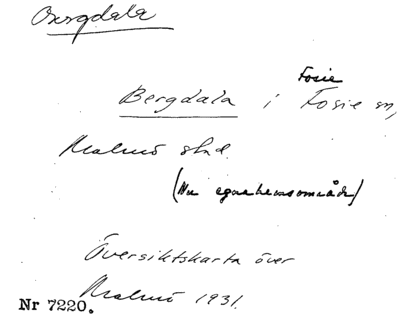 Oxergdala
Fosie
Bergdala i Fosie sn,
Malmö stad.
(Nu egnahemsområde)
Översiktskarta över
Malmö 1931.
Nr 7220.